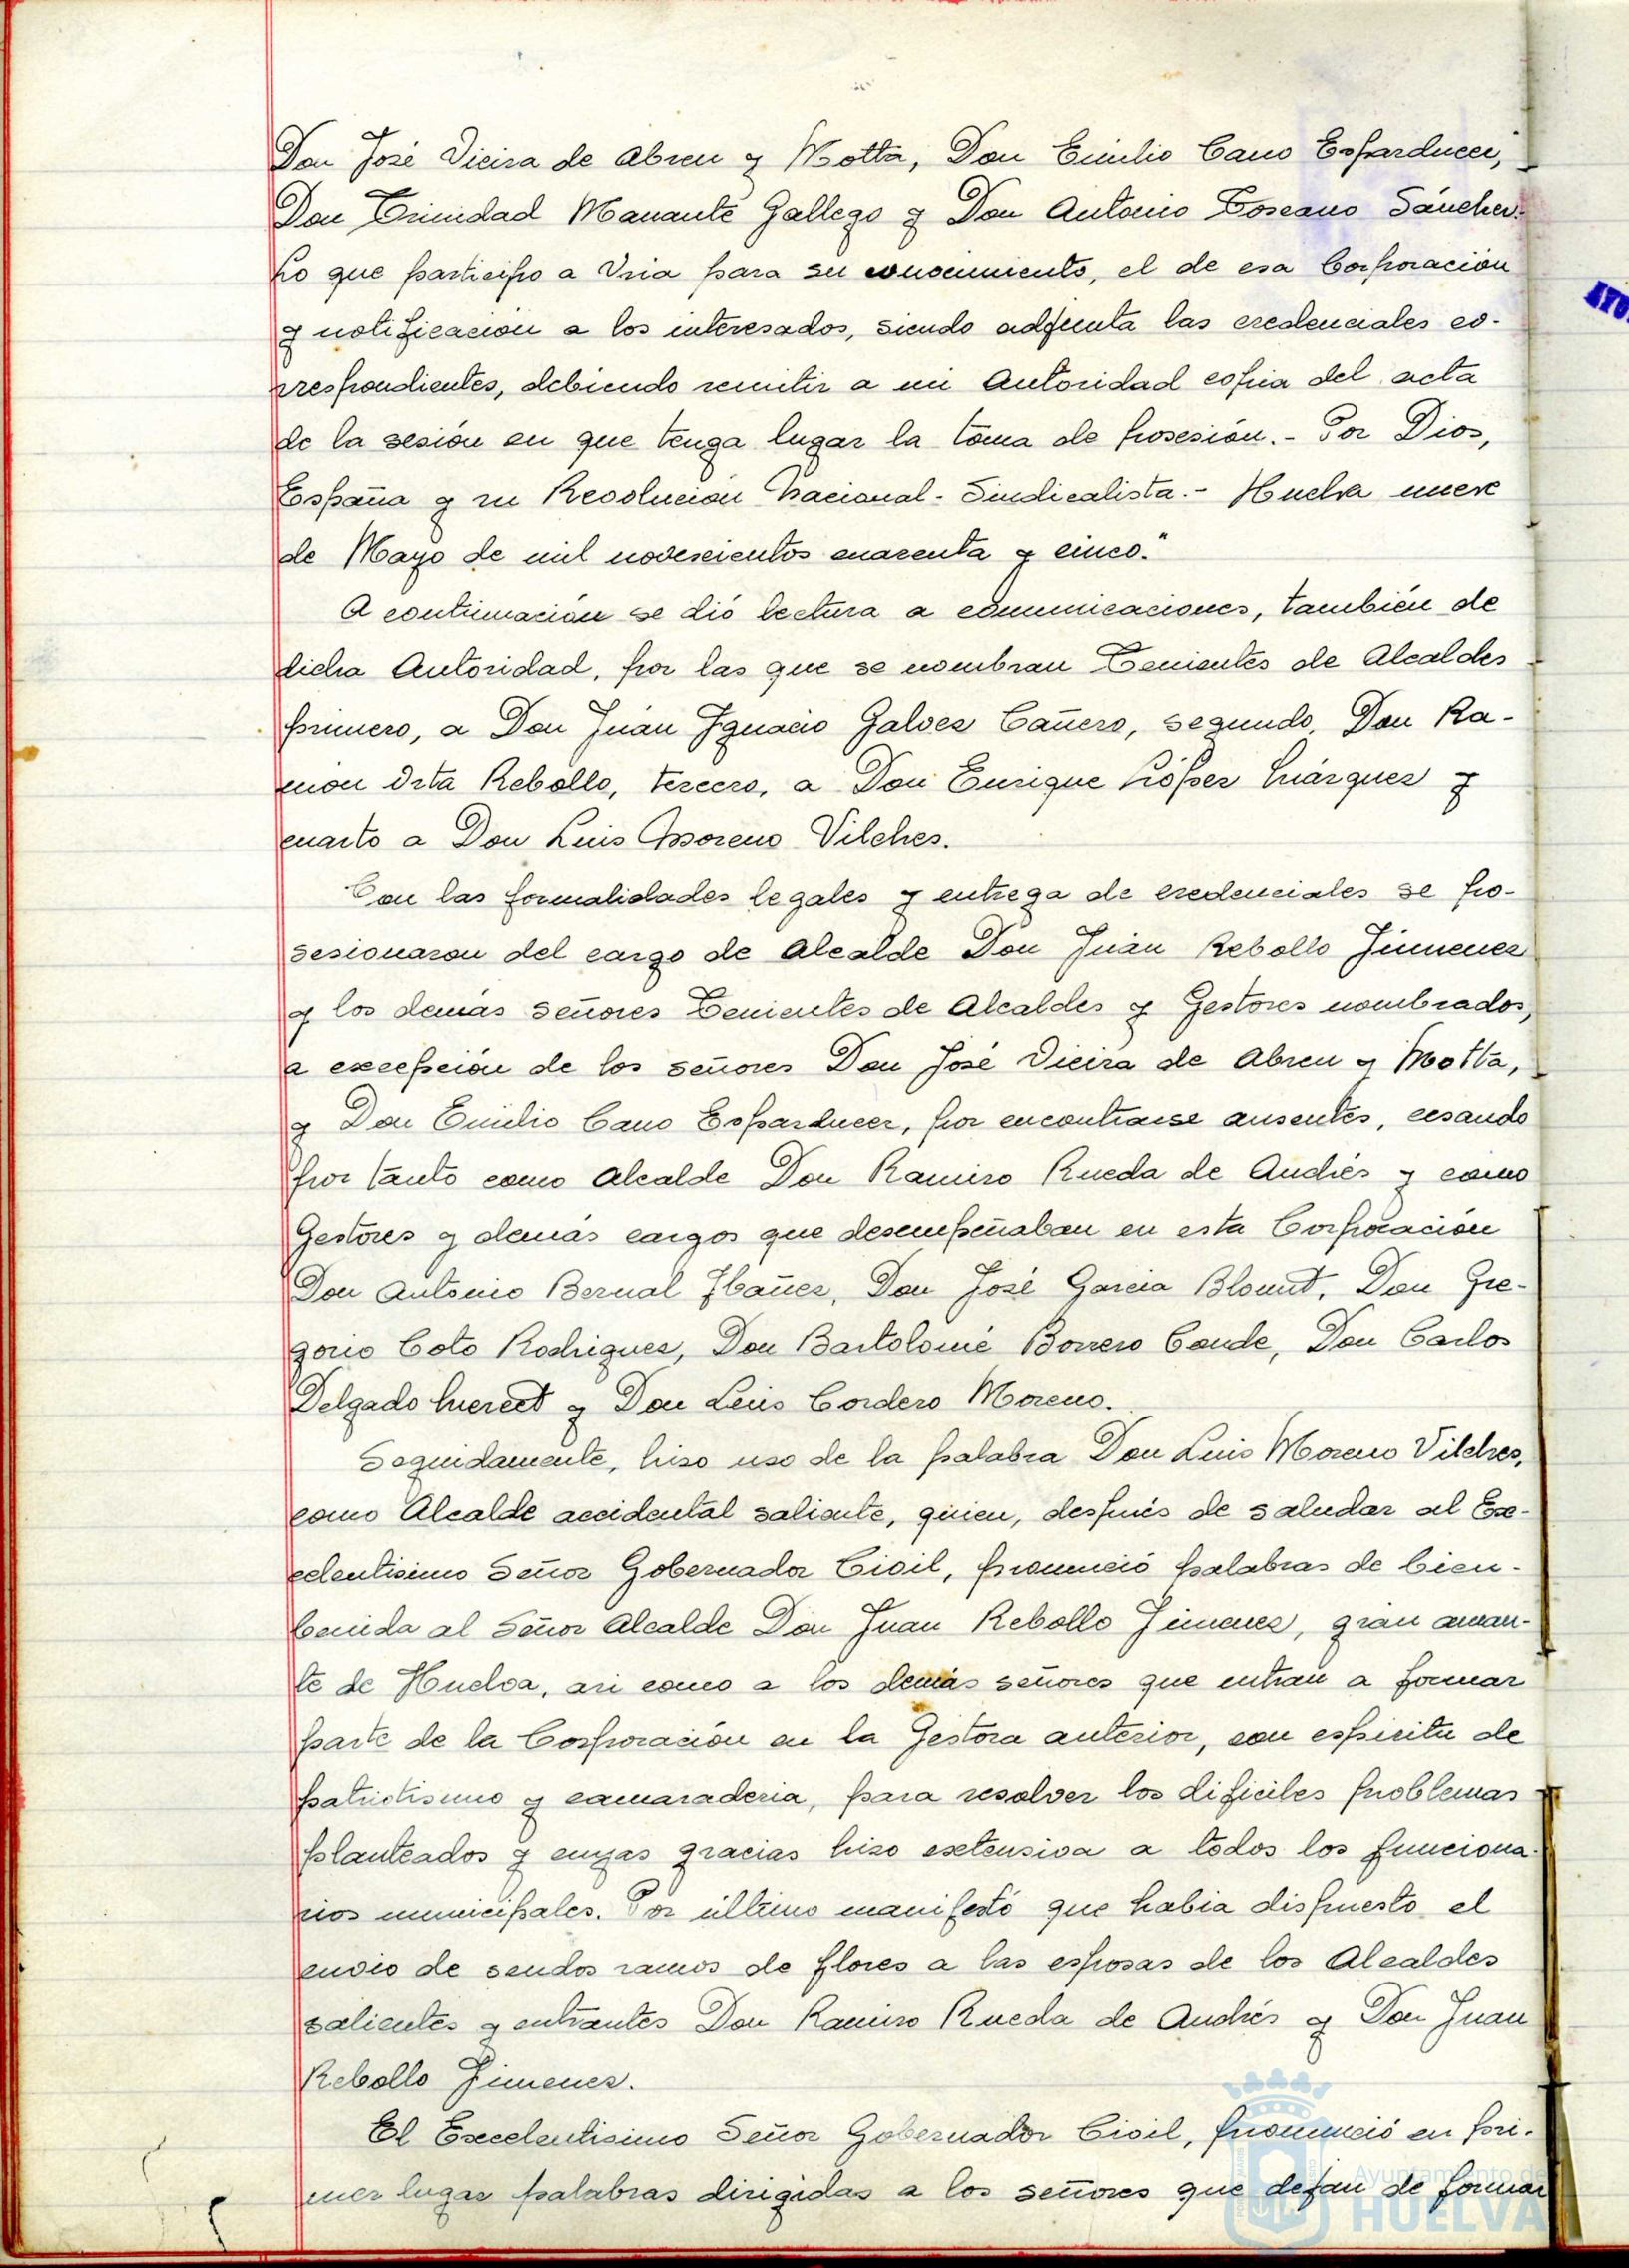 Don José Vieira de Abreu y Motta, Don Emilio Cano Esparducer,
Don Trinidad Manante Gallego y Don Antonio Toscano Sánchez.
Lo que participo a Vsia para su conocimiento, el de esa Corporación
y notificación a los interesados, siendo adjunta las credenciales co-
rrespondientes, debiendo remitir a mi Autoridad copia del acta
de la sesión en que tenga lugar la toma de posesión.- Por Dios,
España y su Revolución Nacional-Sindicalista.- Huelva nueve
de Mayo de mil novescientos cuarenta y cinco."
A continuación se dió lectura a comunicaciones, también de
dicha Autoridad, por las que se nombran Tenientes de Alcaldes
primero, a Don Juan Ignacio Galvez Cañero, segundo, Don Ra-
mon Orta Rebollo, tercero, a Don Enrique López Márquez y
cuarto a Don Luis Moreno Vilches.
Con las formalidades legales y entrega de credenciales se po-
sesionaron del cargo de Alcalde Don Juan Rebollo Jimenez
y los demás señores Tenientes de Alcaldes y Gestores nombrados,
a excepción de los señores Don José Vieira de Abreu y Motta,
y Don Emilio Cano Esparducer, por encontrarse ausentes, cesando
por tanto como Alcalde Don Ramiro Rueda de Andrés y como
Gestores y demás cargos que desempeñaban en esta Corporación
Don Antonio Bernal Ibañez, Don José Garcia Blount, Don Gre-
gorio Coto Rodriguez, Don Bartolomé Borrero Conde, Don Carlos
Delgado y Don Luis Cordero Moreno.
Seguidamente, hizo uso de la palabra Don Luis Moreno Vilches,
como Alcalde accidental saliente, quien, después de saludar al Exc-
celentisimo Señor Gobernador Civil, pronunció palabras de bien-
benida al Señor Alcalde Don Juan Rebollo Jimenez, gran aman-
te de Huelva, asi como a los demás señores que entran a formar
parte de la Corporación en la Gestora anterior, con espiritu de
patriotismo y camaraderia, para resolver los dificiles problemas
planteados y cuyas gracias hizo extensiva a todos los funciona-
rios municipales. Por último manifestó que habia dispuesto el
envio de sendos ramos de flores a las esposas de los Alcaldes
salientes y entrantes Don Ramiro Rueda de Andrés y Don Juan
Rebollo Jimenez.
El Excelentisimo Señor Gobernador Civil, pronunció en pri-
mer lugar palabras dirigidas a los señores que dejan de formar
Ayuntamiento de
HUELVA